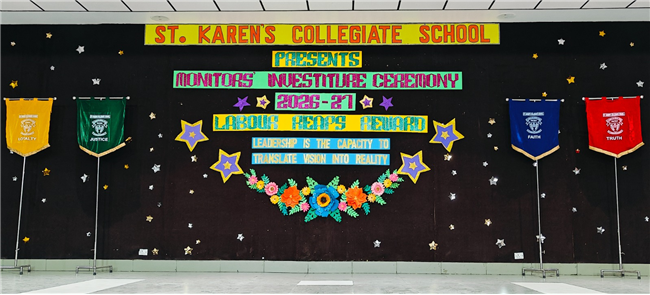 ST. KAREN'S COLLEGIATE SCHOOL
PRESENTS
MONITORS' INVESTITURE CEREMONY
2026-27
LABOUR REAPS REWARD
LEADERSHIP IS THE CAPACITY TO
TRANSLATE VISION INTO REALITY
LOYALTY
JUSTICE
FAITH
TRUTH